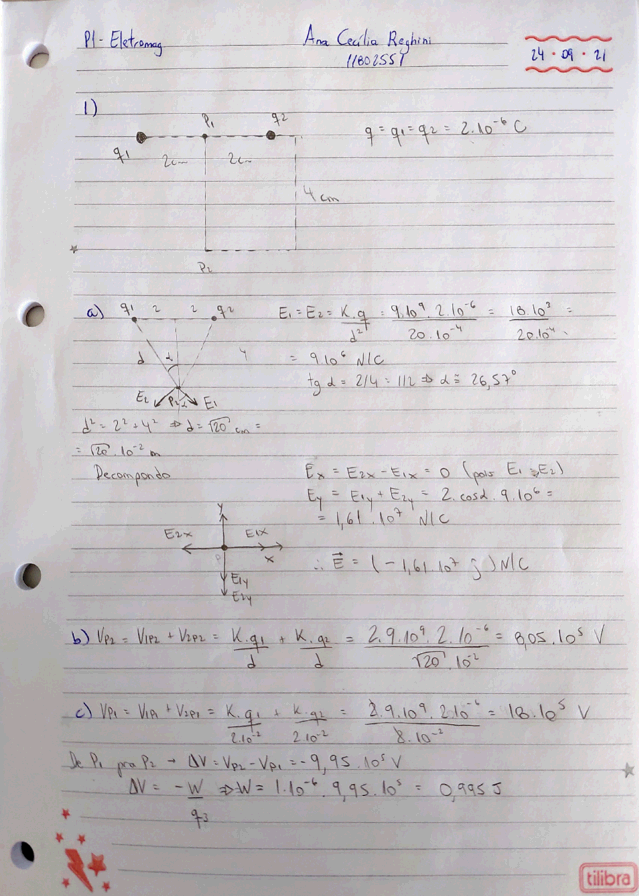 P1 - Eletromag Ana Cecília Reghini 24 • 09 • 21
11802551
1)
P1 q2
q1 2cm 2cm q = q1 = q2 = 2.10⁻⁶ C
4 cm
P2
a) q1 2 2 q2 E1 = E2 = K.q/d² = 9.10⁹.2.10⁻⁶/20.10⁻⁴ = 18.10³/20.10⁻⁴ =
d α 4 = 9.10⁶ N/C
tg α = 2/4 = 1/2 ⇒ α ≅ 26,57°
E2 P2 α E1
d² = 2² + 4² ⇒ d = √20 cm =
= √20 . 10⁻² m
Decompondo Ex = E2x - E1x = 0 (pois E1 = E2)
Ey = E1y + E2y = 2. cosα. 9.10⁶ =
y = 1,61.10⁷ N/C
E2x E1x
x ∴ E⃗ = (-1,61.10⁷ ĵ) N/C
E1y
E2y
b) VP2 = V1P2 + V2P2 = K.q1/d + K.q2/d = 2.9.10⁹.2.10⁻⁶/√20.10⁻² = 8,05.10⁵ V
c) VP1 = V1P1 + V2P1 = K.q1/2.10⁻² + K.q2/2.10⁻² = 2.9.10⁹.2.10⁻⁶/ .10⁻² = 18.10⁵ V
De P1 pra P2 → ΔV = VP2 - VP1 = -9,95.10⁵ V
ΔV = -W/q3 ⇒ W = 1.10⁻⁶.9,95.10⁵ = 0,995 J
tilibra